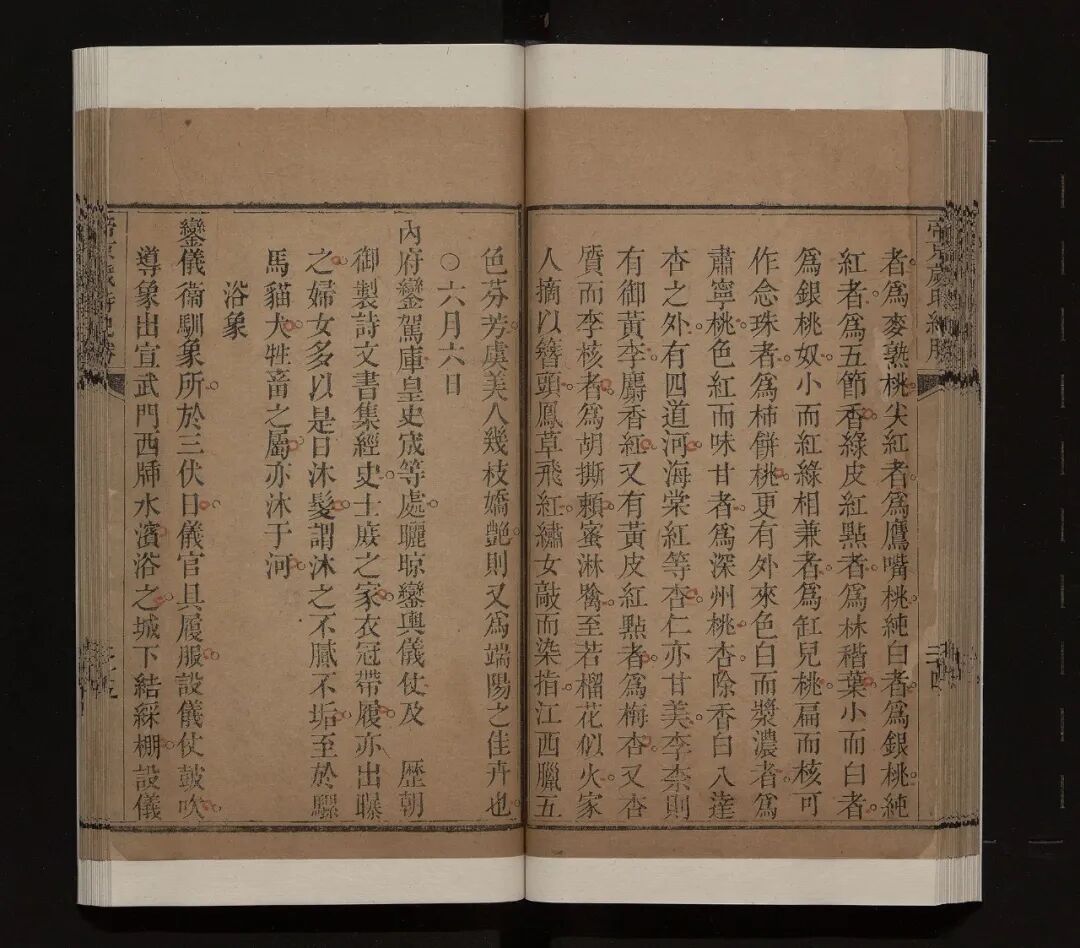 者爲麥熟桃尖紅者爲鷹嘴桃純白者爲銀桃純
紅者爲五節香綠皮紅點者爲林稭葉小而白者
爲銀桃奴小而紅綠相兼者爲缸兒桃扁而核可
作念珠者爲柿餅桃更有外來色白而漿濃者爲
肅寧桃色紅而味甘者爲深州桃杏除香白八達
杏之外有四道河海棠紅等杏仁亦甘美李柰則
有御黃李麝香紅又有黃皮紅點者爲梅杏又杏
質而李核者爲胡撕賴蜜淋噙至若榴花似火家
人摘以簪頭鳳草飛紅繡女敲而染指江西臘五
色芬芳虞美人幾枝嬌艶則又爲端陽之佳卉也
○六月六日
內府鑾駕庫皇史宬等處曬晾鑾輿儀仗及 歷朝
御製詩文書集經史士庶之家衣冠帶履亦出曝
之婦女多以是日沐髮謂沐之不膩不垢至於騾
馬貓犬牲畜之屬亦沐于河
浴象
鑾儀衛馴象所於三伏日儀官具履服設儀仗鼓吹
導象出宣武門西牐水濱浴之城下結綵棚設儀